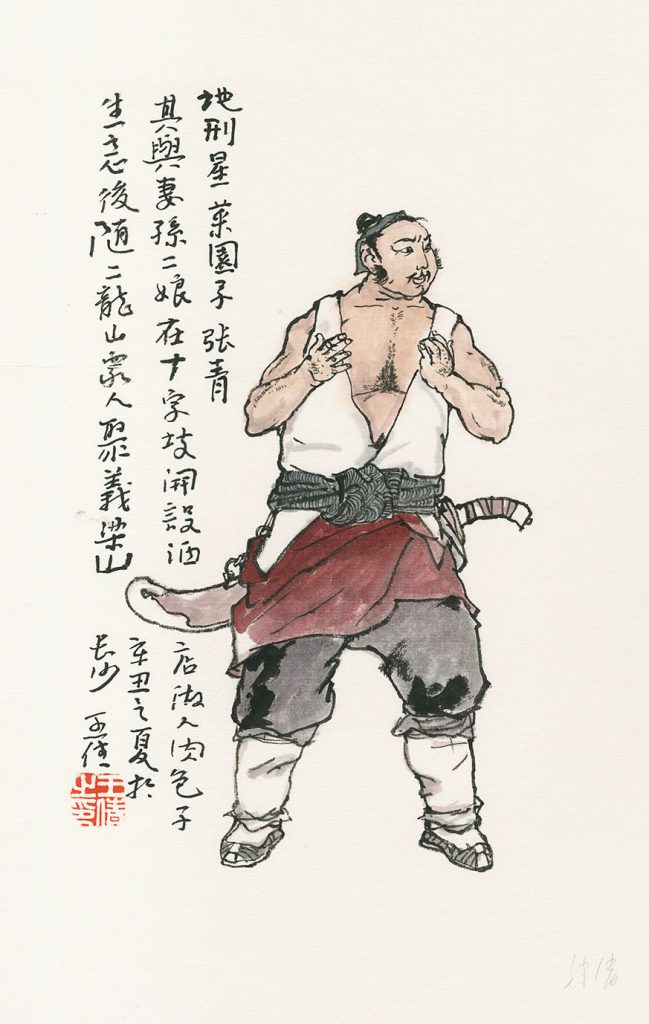 地刑星菜園子張青
其與妻孫二娘在十字坡開設酒
店做人肉包子
生意後随二龍山眾人聚義梁山
辛丑之夏於
長沙 王倩
王倩之印